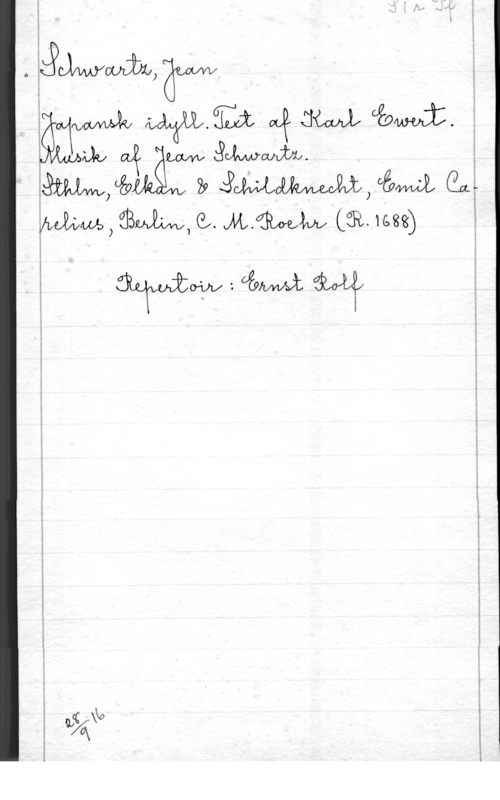 Schwartz, Jean
Japansk idyll. Text af Karl Ewert.
Musik af Jean Schwartz.
Sthlm, Elkan & Schildknecht, Emil Ca-
relius, Berlin, C. M. Roehr (R. 1688)
Repertoir : Ernst Rolf
28/9 16